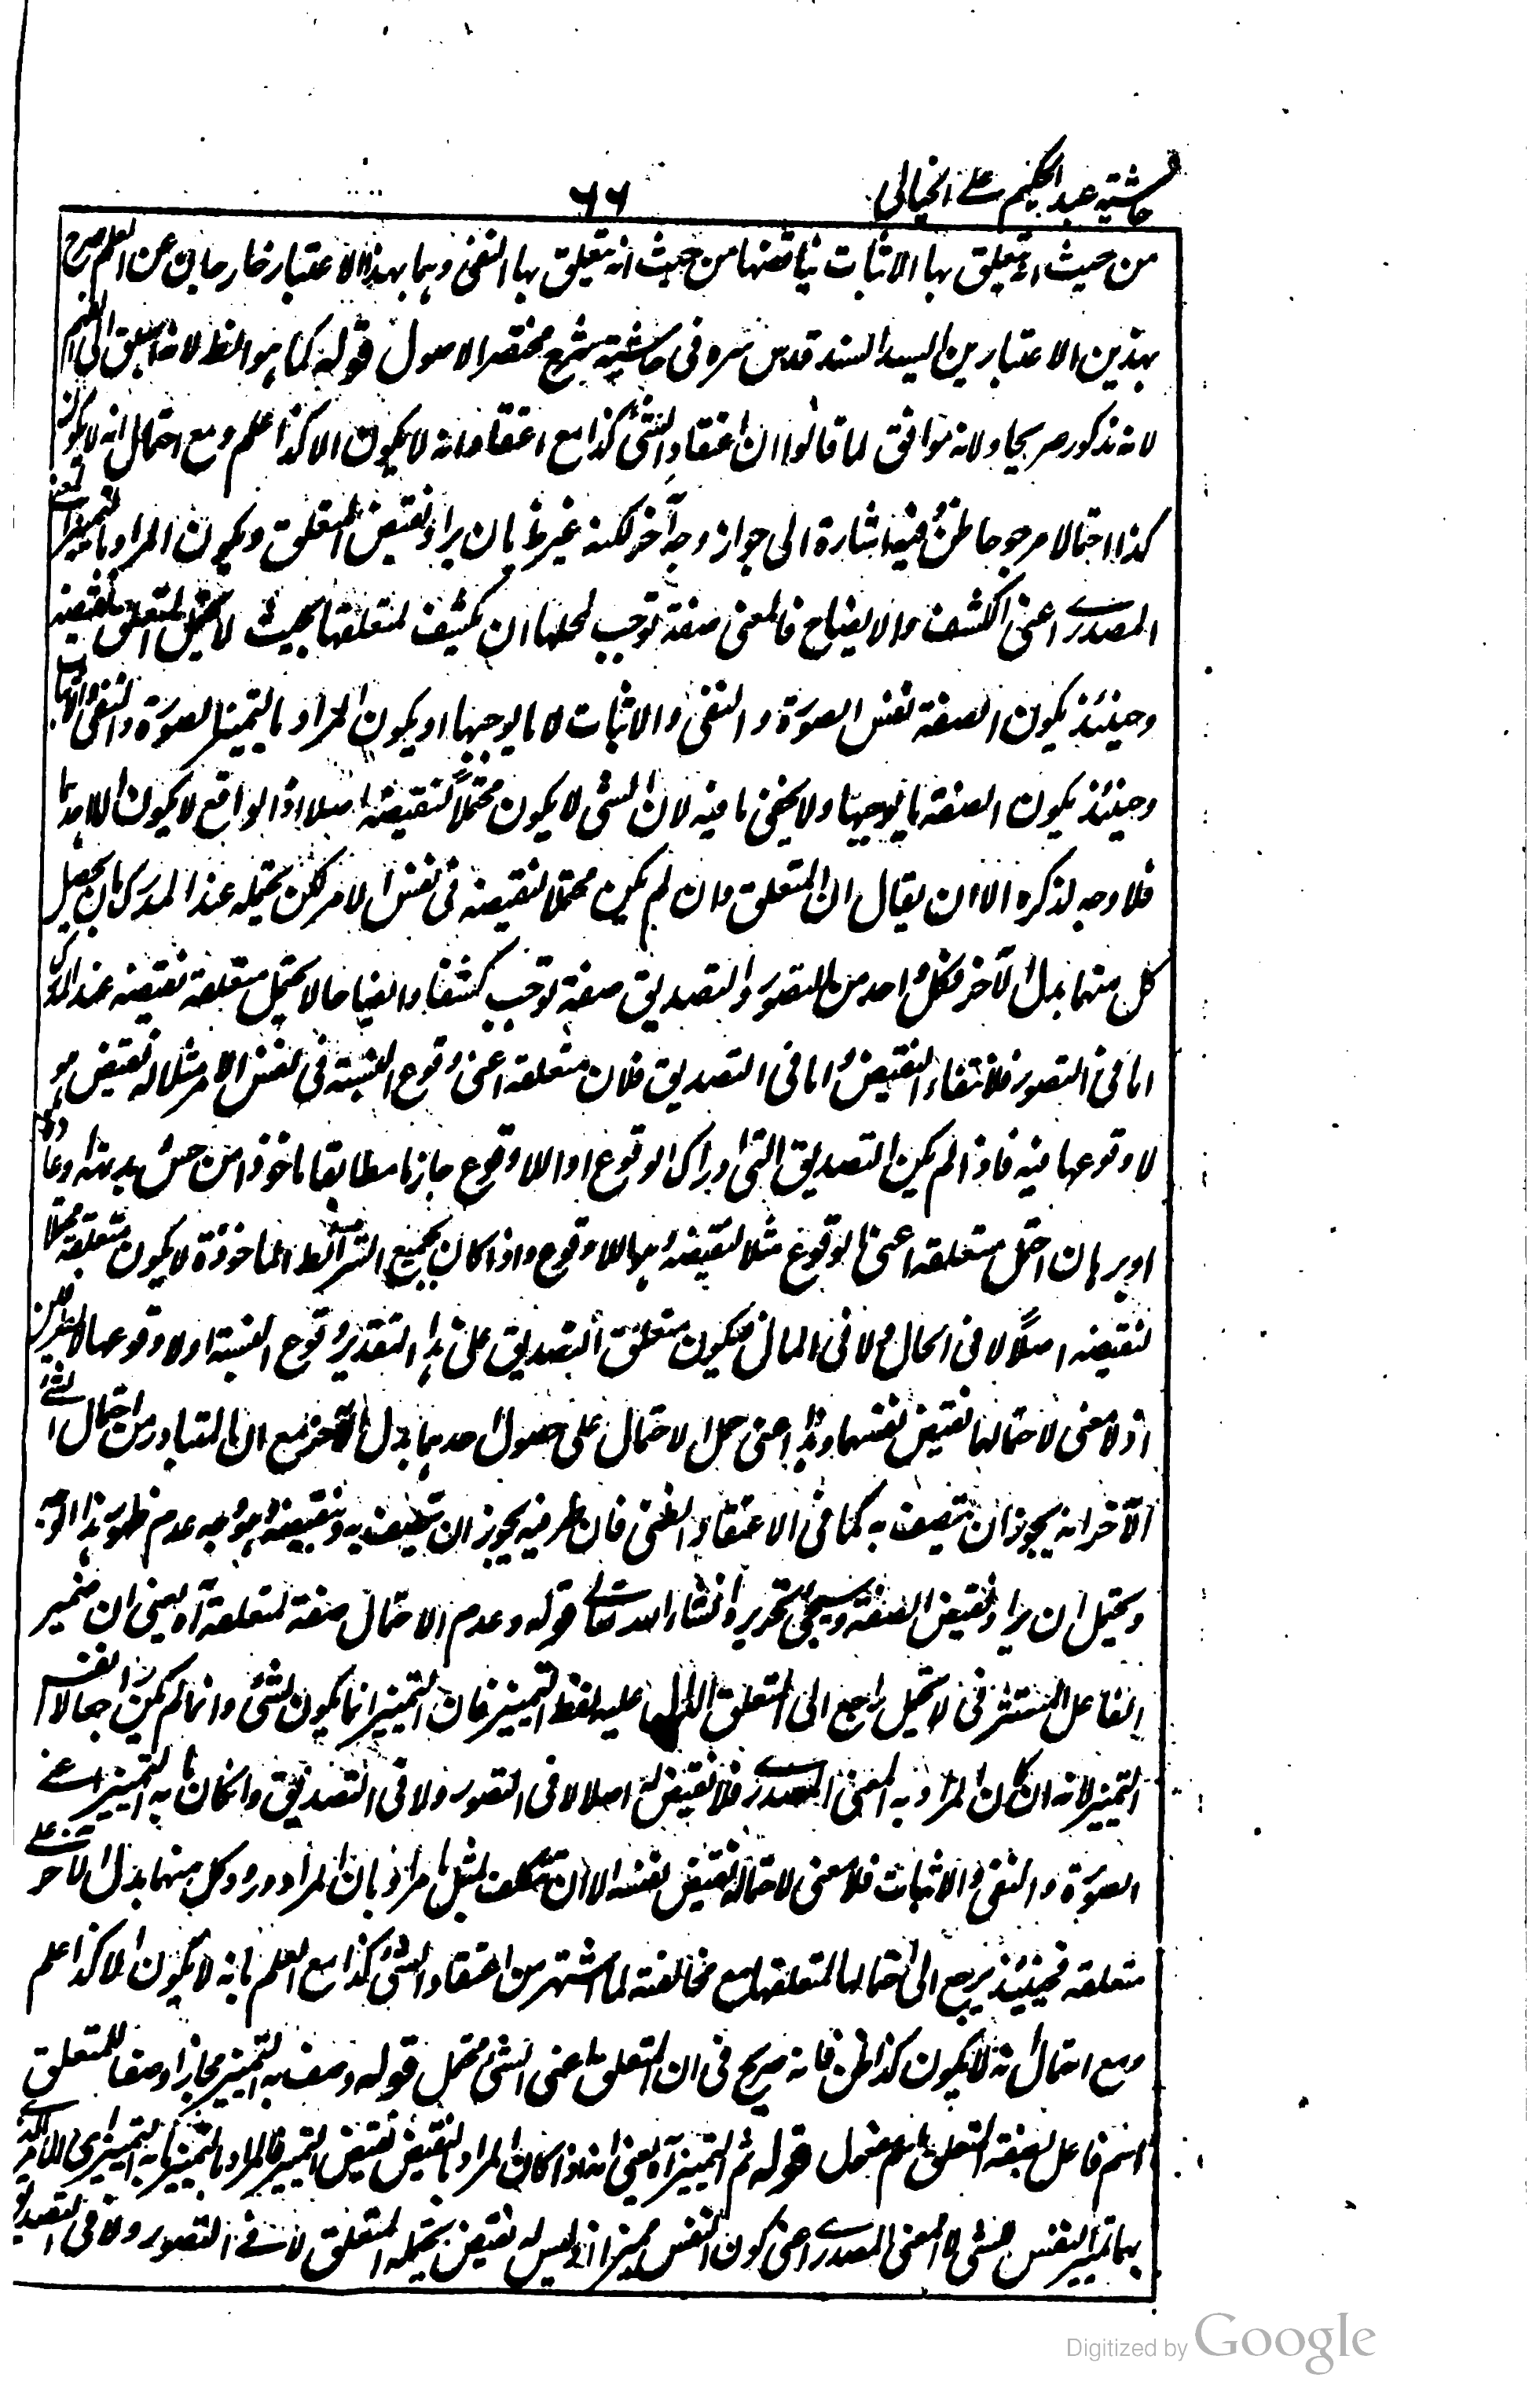 حاشیة عبد الحکیم علے الخیالی
٦٦
من حیث انه یتعلق بها الاثبات یناقضها من حیث انه یتعلق بها النفی وهما بهذا الاعتبار خارجان عن العلم صرح
بهذین الاعتبارین السید السند قدس سره فی حاشیة شرح مختصر الاصول قوله کما هو الظ لانه اسبق الی الفهم
لانه مذکور صریحا ولانه موافق لما قالوا ان اعتقاد الشئ کذا مع اعتقاد انه لا یکون الا کذا علم ومع احتمال انه لا یکون
کذا احتمالا مرجوحا ظن وفیه اشارة الی جواز وجه آخر لکنه غیر ظ بان یراد نقیض المتعلق ویکون المراد بالتمییز المعنے
المصدرے اعنی الکشف والایضاح فالمعنی صفة توجب لمحلها ان یکشف لمتعلقها بحیث لا یحتمل المتعلق نقیضه
وحینئذ یکون الصفة نفس الصورة والنفی والاثبات لا ما یوجبها او یکون المراد بالتمییز الصورة والنفی والاثبات
وحینئذ یکون الصفة ما یوجبها ولا یخفی ما فیه لان الشئ لا یکون محتملاً لنقیضه اصلا اذ الواقع لا یکون الا احدهما
فلا وجه لذکره الا ان یقال ان المتعلق وان لم یکن محتملا لنقیضه فی نفس الامر لکن یحتمله عند المدرک بان یحصل
کل منهما بدل الآخر فکل واحد من التصور والتصدیق صفة توجب کشفا وایضاحا لا یحتمل متعلقه نقیضه عند المدرک
اما فی التصور فلانتفاء النقیض واما فی التصدیق فلان متعلقه اعنی وقوع النسبة فی نفس الامر مثلا له نقیض هو
لا وقوعها فیه فاذا لم یکن التصدیق ای ادراک الوقوع او اللا وقوع جازما مطابقا ماخوذا من حس او بدیهة او عادة
او برهان احتمل متعلقه اعنی الوقوع مثلا لنقیضه وهو اللا وقوع واذا کان بجمیع الشرائط الماخوذة لا یکون متعلقه محتملا
لنقیضه اصلاً لا فی الحال ولا فی المال فیکون متعلق التصدیق علی هذا التقدیر وقوع النسبة او لا وقوعها لا الطرفین
اذ لا معنی لاحتمالها نقیض نفسهما وهذا اعنی حمل الاحتمال علی حصول احدهما بدل الآخر مع ان المتبادر من احتمال الشئ
الآخر انه یجوز ان یتصف به کما فی الاعتقاد الظنی فان طرفیه یجوز ان یتصف به وبنقیضه هو وجه عدم ظهور هذا الوجه
ویحتمل ان یراد نقیض الصفة وسیجئ تحریره انشاء الله تعالے قوله وعدم الاحتمال صفة لمتعلقه آه یعنی ان ضمیر
الفاعل المستتر فی لا یحتمل راجع الی المتعلق الدال علیه لفظ التمییز فان التمییز انما یکون لشئ وانما لم یکن راجعا الا نفس
التمییز لانه ان کان المراد به المعنی المصدرے فلا نقیض له اصلا لا فی التصور ولا فی التصدیق وان کان ما به التمییز اعنے
الصورة والنفی والاثبات فلا معنی لاحتماله نقیض نفسه الا ان یتکلف بمثل ما مر اذ بان المراد ورود کل منهما بدل الآخر علے
متعلقه فحینئذ یرجع الی احتمالها لمتعلقها مع مخالفته لما اشتهر من اعتقاد الشئ کذا مع العلم بانه لا یکون الا کذا علم
ومع احتمال انه لا یکون کذا ظن فانه صریح فی ان المتعلق اعنی الشئ محتمل قوله وصف به التمییز مجازا وصفا للمتعلق
اسم فاعل بصفة المتعلق اسم مفعول قوله ثم التمییز آه یعنی انه اذا کان المراد بالنقیض نقیض التمییز فالمراد بالتمییز ما به التمییز ای الامر الذے
به تمییز النفس لشئ لا المعنی المصدرے اعنی کون النفس ممیزا اذ لیس له نقیض یحتمله المتعلق لا فے التصور ولا فی التصدیق
Digitized by Google